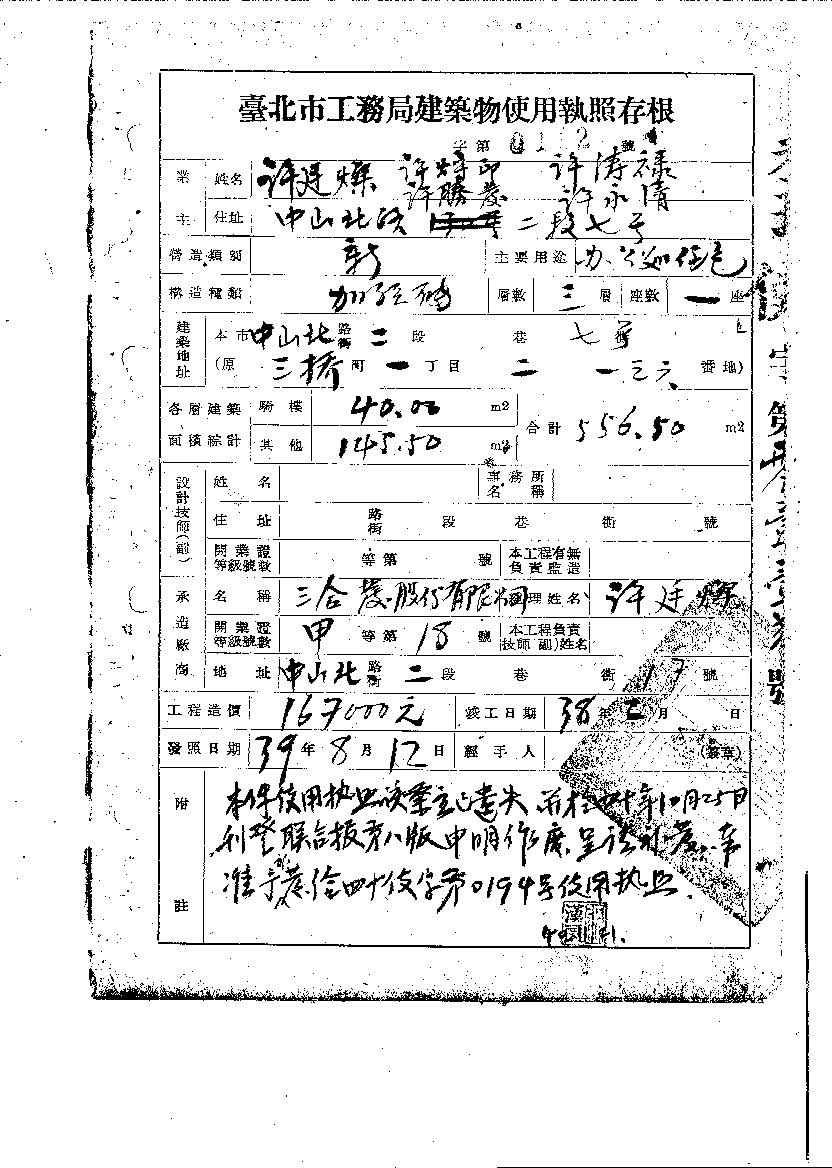 臺北市工務局建築物使用執照存根
字第 0112 號
業主 姓名 許廷燦 許 許
許勝發 許永清
住址 中山北路 二段七号
營造類別 新 主要用途 办公
構造種類 加強磚 層數 三 層 座數 一 座
建築地址 本市 中山北 路街 二 段 巷 七号
(原 三橋 町 一 丁目 二 一三六 番地)
各層建築面積綜計 騎樓 40.00 m2 合計 556.50 m2
其他 145.50 m2
設計技師(副) 姓名 事務所名稱
住址 路街 段 巷 衖 號
開業證等級號數 等第 號 本工程有無負責監造
承造廠商 名稱 三合發股份有限公司 理姓名 許廷燦
開業證等級號數 甲 等第 18 號 本工程負責技師(副)姓名
地址 中山北 路街 二 段 巷 衖 17 號
工程造價 167000元 竣工日期 38 年 二 月 日
發照日期 39 年 8 月 12 日 經手人 (簽章)
附註 本件使用执照候業主已遺失 并於四十年10月25日
刊登联合报第八版申明作廢 呈請補發 奉
准予發给四十使字第0194号使用执照.